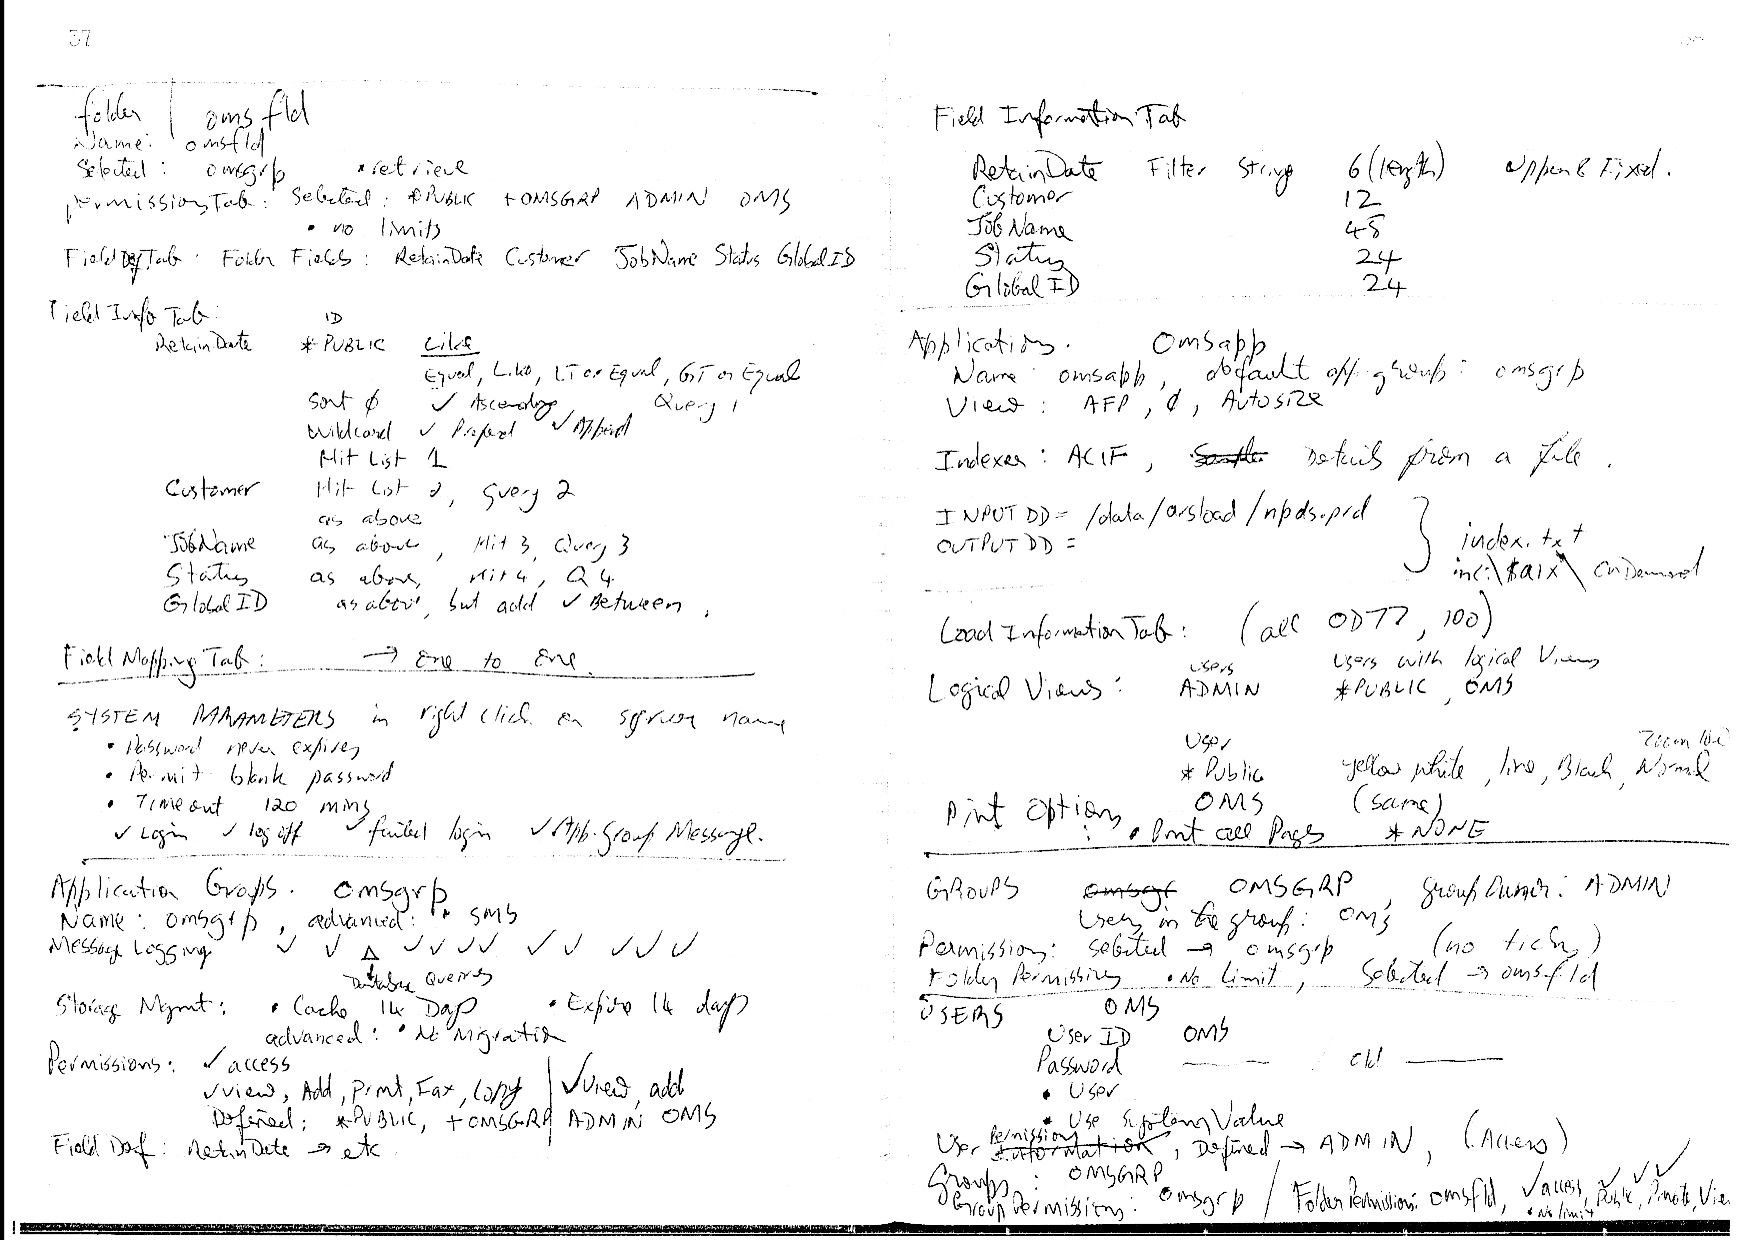 37
folder | omsfld
Name: omsfld
Selected: omsgrp • retrieve
permissionsTab: Selected: *PUBLIC +OMSGRP ADMIN OMS
• no limits
Field Def Tab: Folder Fields: RetainDate Customer JobName Status GlobalID
Field Info Tab: ID
RetainDate *PUBLIC Like
Equal, Like, LT or Equal, GT or Equal
Sort ø ✓ Ascending Query 1
Wildcard ✓ Prepend ✓ Append
Hit List 1
Customer Hit List 2, Query 2
as above
JobName as above, Hit 3, Query 3
Status as above, Hit 4, Q 4
GlobalID as above, but add ✓ Between.
Field Mapping Tab: → One to One
SYSTEM PARAMETERS in right click on server name
• Password never expires
• Permit blank password
• Timeout 120 mins
✓ Login ✓ log off ✓ failed login ✓ App. Group Message.
Application Groups. omsgrp
Name: omsgrp, advanced: • SMS
Message Logging ✓ ✓ Δ ✓ ✓ ✓ ✓ ✓ ✓ ✓ ✓ ✓
Database Queries
Storage Mgmt: • Cache 14 Days • Expire 14 days
advanced: • No Migration
Permissions: ✓ access
✓ view, Add, Print, Fax, Copy | ✓ view, add
Defined: *PUBLIC, +OMSGRP ADMIN OMS
Field Def: RetainDate → etc
Field Information Tab
RetainDate Filter String 6 (length) Upper & Fixed.
Customer 12
JobName 48
Status 24
GlobalID 24
Applications. omsapp
Name: omsapp, default app. group: omsgrp
View: AFP, ø, Autosize
Indexer: ACIF, Details from a file.
INPUTDD= /data/arsload/npds.prd
OUTPUTDD= } index.txt
in c:\$aix\OnDemand
Load Information Tab: (all OD77, 100)
Users Users with logical Views
Logical Views: ADMIN *PUBLIC, OMS
User Zoom
*Public yellow white, line, Black, Normal
OMS (same)
Print Options: • Print all Pages *NONE
GROUPS omsgr OMSGRP, group Owner: ADMIN
Users in the group: OMS
Permission: Selected → omsgrp (no ticks)
Folder Permissions • No Limit, Selected → omsfld
USERS OMS
User ID OMS
Password
• User
• Use System Value
User Permissions Information, Defined → ADMIN, (Access)
Groups: OMSGRP
Group Permissions: omsgrp / Folder Permissions: omsfld, ✓ access, ✓ Public, ✓ Private, ✓ View
• No limit